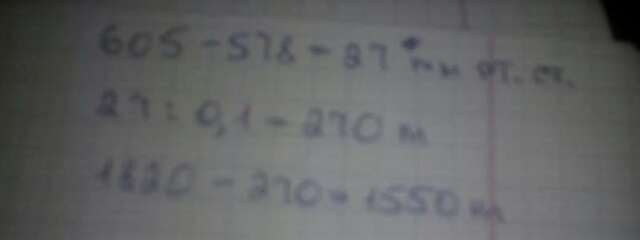 605 - 578 = 27 мм рт. ст.
27 : 0,1 = 270 м
1820 - 270 = 1550 м